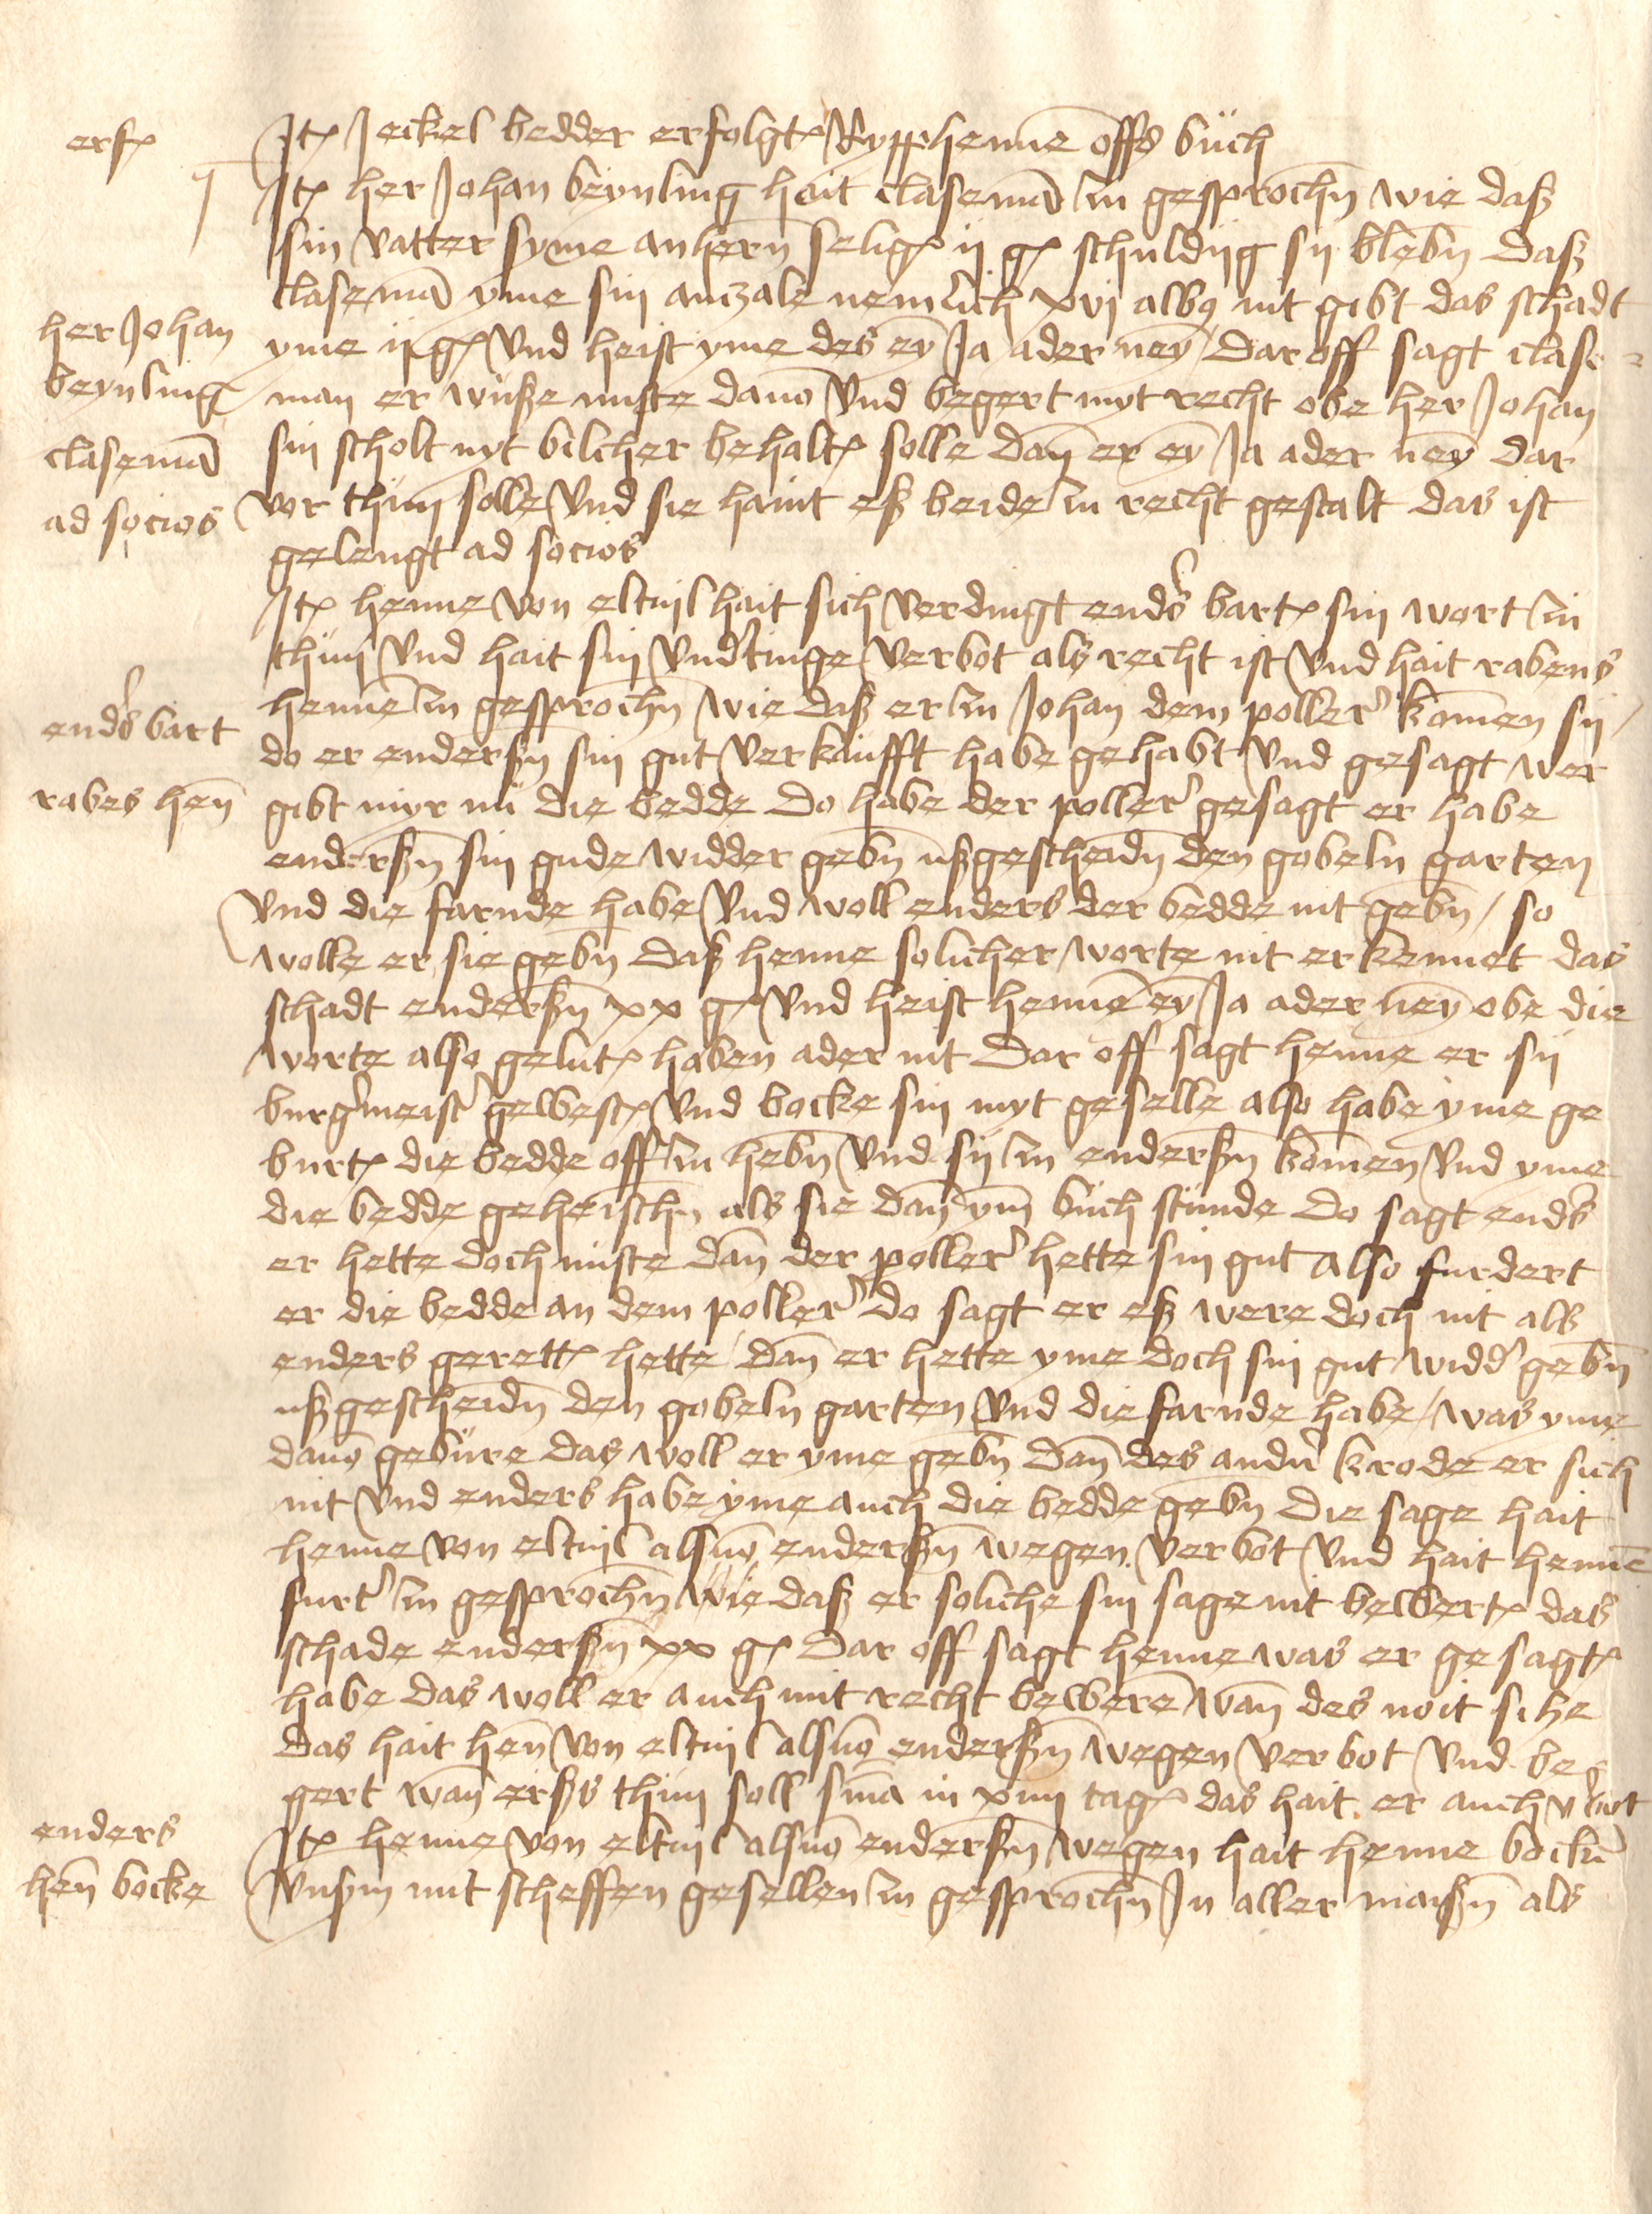 erf
Jt Jeckel bedder erfolgt Rypphenne offs buch
Jt her Johan beynling hait clasemā zu gesprochn wie daß
sin vatter syme anhern selig ij g schuldig sy blebn Daß
clasemā yme sin anzale nemlich xvj albg nit gibt das schadt
her Johan
yme ij g Vnd heist yme des ey Ja ader neyn / Dar off sagt clase
beynling
man er wuße nuste dauō Vnd begert myt recht obe her Johan
clasemā
sin scholt nyt bilcher behalt solle dan er ey Ja ader ney dar
ad socios
vor thun solle Vnd sie haint eß beide zu recht gestalt das ist
gelengt ad socios
Jt henne von eltuil hait sich verdingt endrs bart sin wort zu
thun Vnd hait sin Vndtinge verbot als recht ist Vnd hait rabens
henne zu gesprochn wie daß er zu Johan dem poller komen sij /
endrs bart
do er enderßn sin gut verkaufft habe gehabt Vnd gesagt wer
rabes hen
gibt myr nu die bedde Do habe der poller gesagt er habe
enderßn sin gude widder gebn ußgescheidn den gobeln garten
Vnd die farnde habe Vnd woll enders der bedde nit gebn / so
wolle er sie gebn Daß henne solicher worte nit erkennet das
schadt enderßn xx g Vnd heist henne ey Ja ader ney obe die
worte also gelut haben ader nit Dar off sagt henne er sij
burgmeist gewest Vnd bocke sin myt geselle also habe yme ge
burt die bedde off zu hebn Vnd sij zu enderßn komen Vnd yme
die bedde geheischn als sie dan ym buch stunde Do sagt endrs
er hette doch nuste dan der poller hette sin gut Also furdert
er die bedde an dem poller Do sagt er eß were doch nit als
enders gerett hette / dan er hette yme doch sin gut widd gebn
ußgescheidn den gobeln garten Vnd die farnde habe / was yme
dauō gebure das woll er yme gebn Dan des andn krode er sich
nit Vnd enders habe yme auch die bedde gebn Die sage hait
henne von eltuil als vō enderßn wegen verbot Vnd hait henne
furt zu gesprochn wie daß er soliche sin sage nit bewert das
schade enderßn xx g Dar off sagt henne was er gesagt
habe das woll er auch mit recht bewere wan des noit sihe
Das hait hen von eltuil als vō enderßn wegen verbot Vnd be
gert wan erßs thun soll sma in xiiij tag das hait er auch vbot
enders
Jt henne von eltuil als vō enderßn wegen hait henne bockn
hen bocke
Vnßm mit scheffen gesellen zu gesprochn Jn aller maißn als